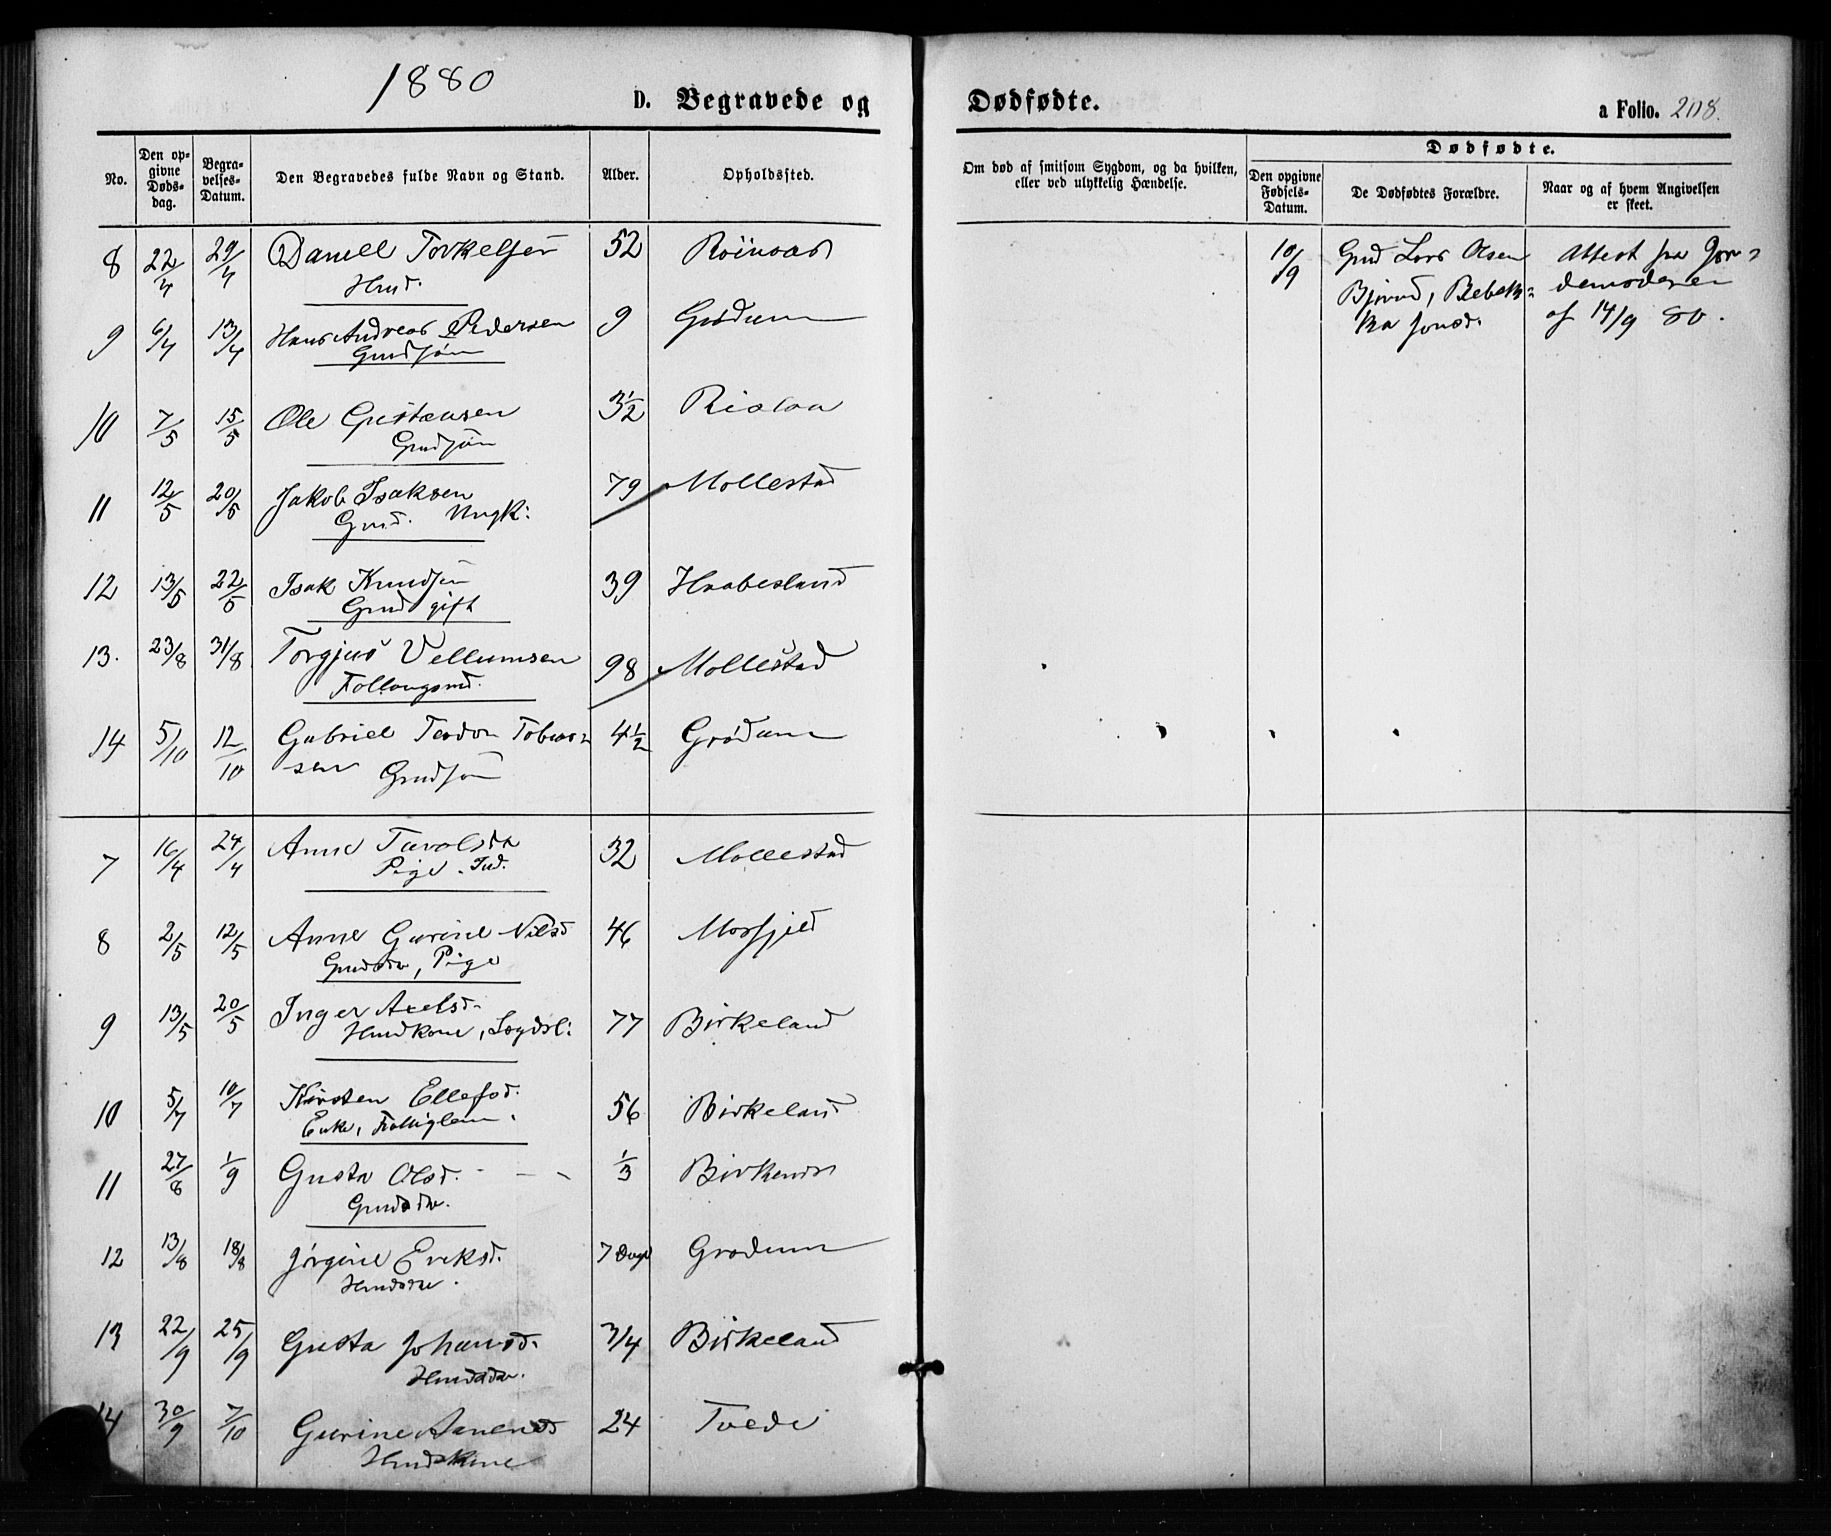 1880
D. Begravede og Dødfødte.
a Folio. 208.
No.
Den opgivne Dødsdag.
Begravelses-Datum.
Den Begravedes fulde Navn og Stand.
Alder.
Opholdssted.
Om død af smitsom Sygdom, og da hvilken, eller ved ulykkelig Hændelse.
Dødfødte.
Den opgivne Fødsels-Datum.
De Dødfødtes Forældre.
Naar og af hvem Angivelsen er skeet.
8 22/4 29/4 Daniel Torkelsen 52
Hmd.
9 6/4 13/4 Hans Andreas Pedersen 9 Grødum
Gmdsøn
10 7/5 15/5 Ole Gustavsen 3 1/2 Rislaa
Gmdsøn
11 12/5 20/5 Jakob Isaksen 79 Mollestad
Gmd. Ungk:
12 13/5 22/5 Isak Knudsen 39 Haabesland
Gmd gift
13. 23/8 31/8 Torgjus Vellumsen 98 Mollestad
14 5/10 12/10 Gabriel Teodor Tobias- 4 1/2 Grødum
sen Gmdsøn
7 16/4 24/4 Anne Tarolsdr 32 Mollestad
Pige. Ind.
8 2/5 12/5 Anne Gurine Nilsd 46 Mosfjeld
Gmdsdtr, Pige
9 13/5 20/5 Inger Axelsd. 77 Birkeland
Hmdkone, Lægdsl:
10 5/7 10/7 Kirsten Ellefsd. 56 Birkeland
Enke, Fattiglem.
11 27/8 1/9 Gusta Olsd. 1/3
Gmdsdtr.
12 13/8 18/8 Jørgine Eriksd. 7 Dage Grødum
Hmdsdtr.
13 22/9 25/9 Gusta Johansd. 3/4 Birkeland
Hmdsdtr.
14 30/9 7/10 Gurine Aanensd 24 Tvede
Hmdskone
10/9 Gmd Lars Olsen Attest fra Jor-
Bjorvd, Rebek- demoderen
ka Jonsd. af 14/9 80.